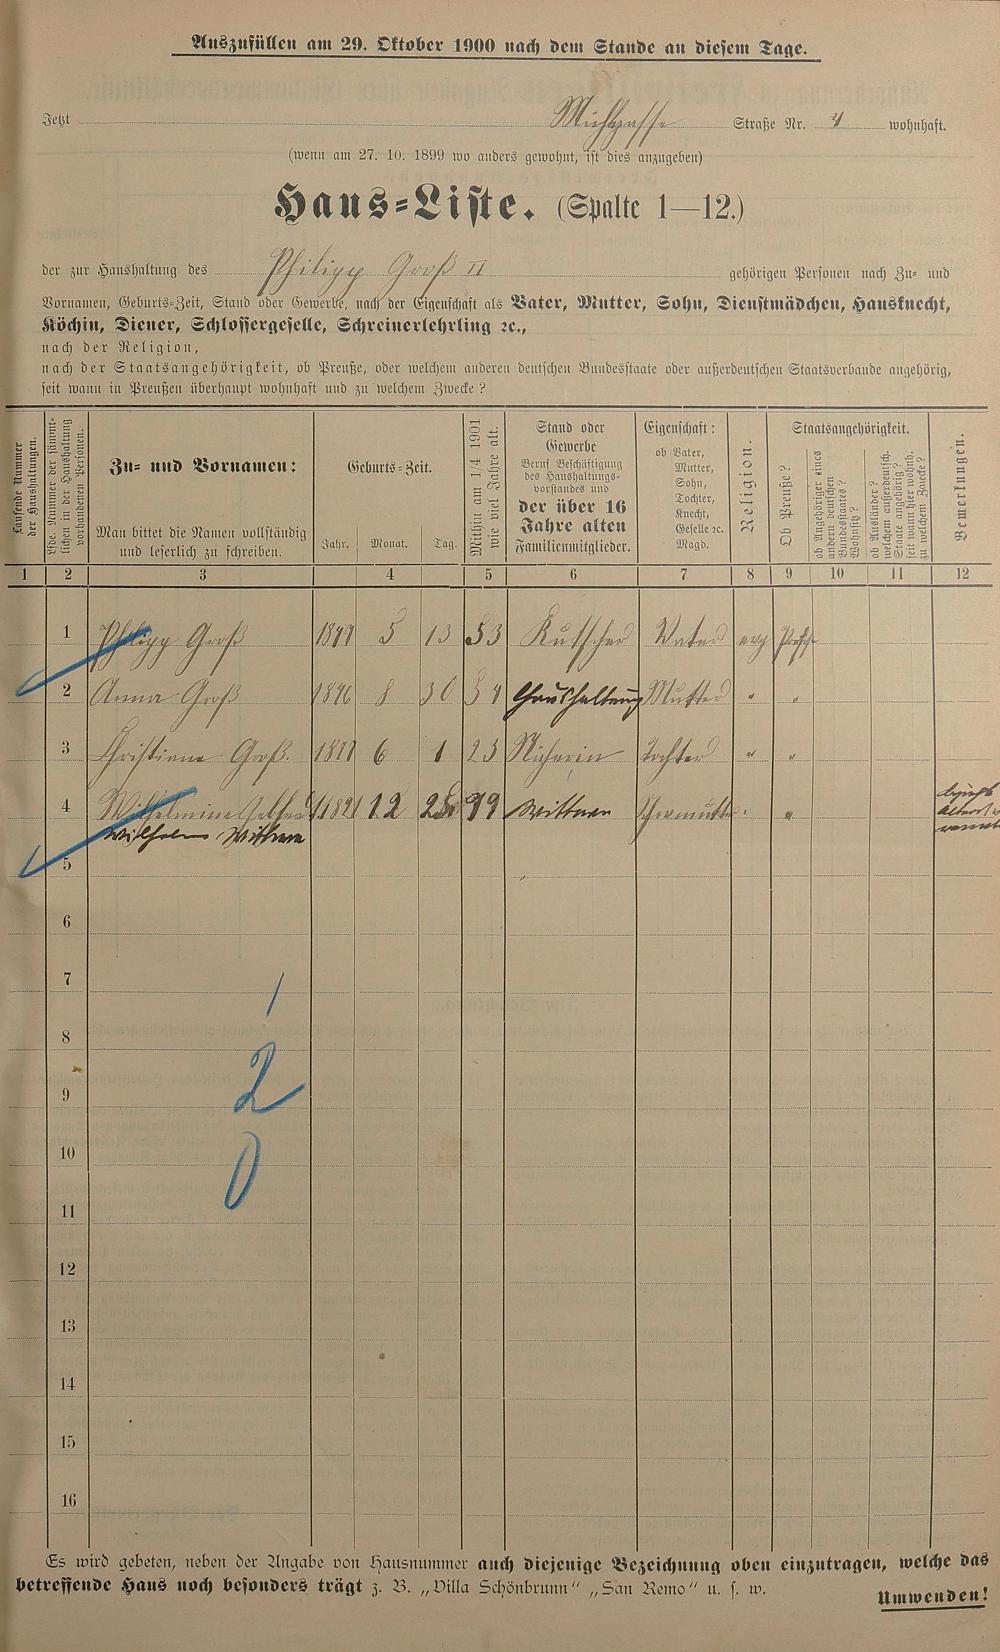 Auszufüllen am 29. Oktober 1900 nach dem Stande an diesem Tage.
Jetzt Mühlgasse Straße Nr. 4 wohnhaft.
(wenn am 27. 10. 1899 wo anders gewohnt, ist dies anzugeben)
Haus-Liste. (Spalte 1—12.)
der zur Haushaltung des Philipp Groß II gehörigen Personen nach Zu- und
Vornamen, Geburts-Zeit, Stand oder Gewerbe, nach der Eigenschaft als Vater, Mutter, Sohn, Dienstmädchen, Hausknecht,
Köchin, Diener, Schlossergeselle, Schreinerlehrling ꝛc.,
nach der Religion,
nach der Staatsangehörigkeit, ob Preuße, oder welchem anderen deutschen Bundesstaate oder außerdeutschen Staatsverbande angehörig,
seit wann in Preußen überhaupt wohnhaft und zu welchem Zwecke?
Laufende Nummer der Haushaltungen.
Lfde. Nummer der sämmtlichen in der Haushaltung vorhandenen Personen.
Zu- und Vornamen:
Man bittet die Namen vollständig
und leserlich zu schreiben.
Geburts-Zeit.
Jahr. Monat. Tag.
Mithin am 1/4 1901 wie viel Jahre alt.
Stand oder
Gewerbe
Beruf Beschäftigung
des Haushaltungs-
vorstandes und
der über 16
Jahre alten
Familienmitglieder.
Eigenschaft:
ob Vater,
Mutter,
Sohn,
Tochter,
Knecht,
Geselle ꝛc.
Magd.
Religion.
Staatsangehörigkeit.
Ob Preuße?
ob Angehöriger eines andern deutschen Bundesstaates? Wohnsitz?
ob Ausländer? welchem außerdeutsch. Staate angehörig? seit wann hier wohnh. zu welchem Zwecke?
Bemerkungen.
1 2 3 4 5 6 7 8 9 10 11 12
1 Philipp Groß 1847 5 13 53 Kutscher Vater evg
2 Anna Groß 1846 8 30 54 Haushaltung Mutter " "
3 Christiane Groß. 1877 6 1 23 Näherin Tochter " "
4 Wilhelmine 1821 12 28 79 Wittwe "
Wilhelm Wittwe
5
6
7
8
9
10
11
12
13
14
15
16
1
2
0
Es wird gebeten, neben der Angabe von Hausnummer auch diejenige Bezeichnung oben einzutragen, welche das
betreffende Haus noch besonders trägt z. B. „Villa Schönbrunn“ „San Remo“ u. s. w.
Umwenden!